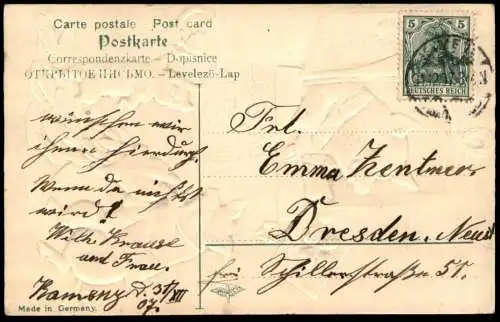 Carte postale Post card
Postkarte
Correspondenzkarte – Dopisnice
ОТКРЫТОЕ ПИСЬМО. – Levelező-Lap
5 5
DEUTSCHES REICH
wünschen wir
ihnen hierdurch.
Wenn da nichts
wird!
Wilh. Krause
und Frau.
Kamenz d. 31/XII
07.
Made in Germany.
Frl.
Emma Zentner
Dresden. Neust
Schillerstraße 51.